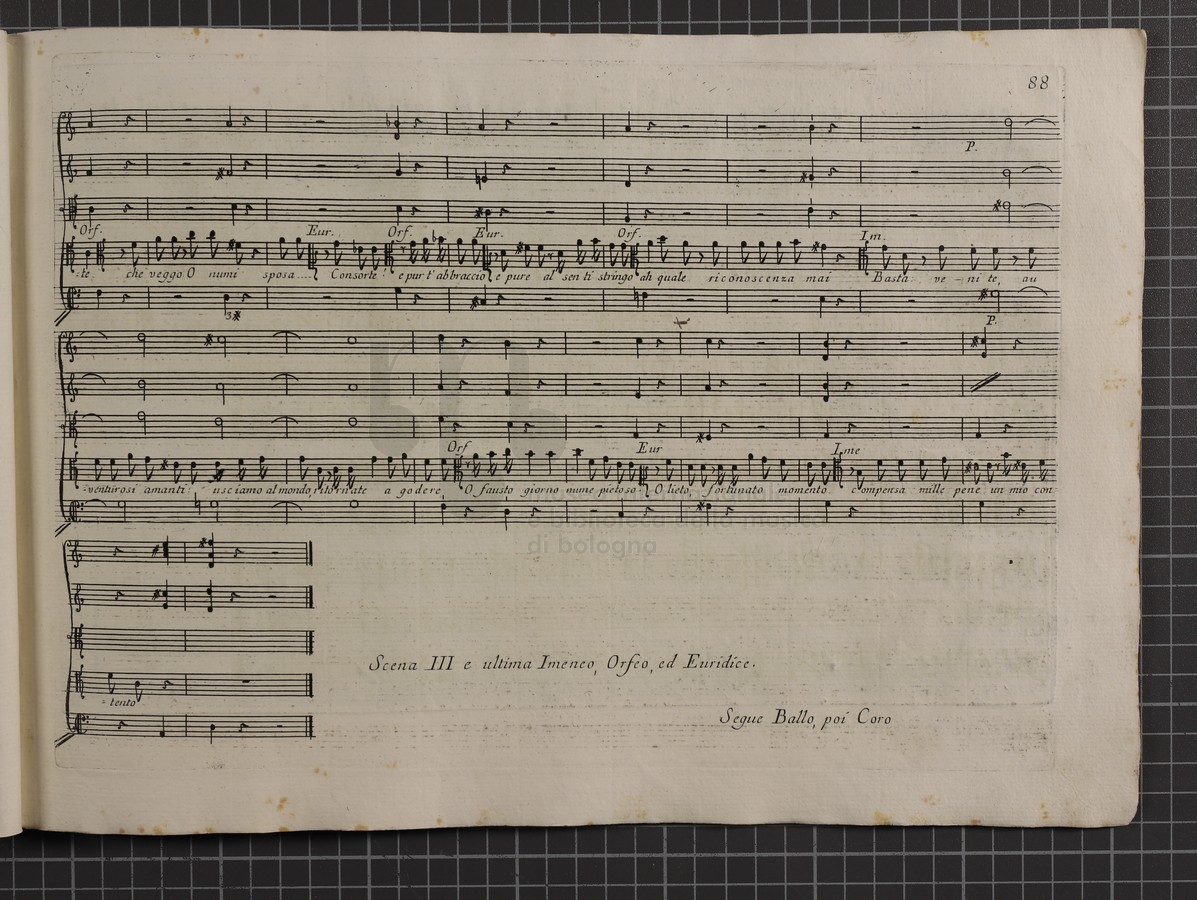 88
P.
Orf. Eur. Orf. Eur. Orf. Im.
-te che veggo O numi sposa.... Consorte e pur t'abbraccio e pure al sen ti stringo ah quale riconoscenza mai Basta ve-ni te, au
3
P.
Orf Eur Ime
-venturosi amanti usciamo al mondo ritornate a godere, O fausto giorno nume pietoso O lieto, fortunato momento compensa mille pene un mio con
di bologna
Scena III e ultima Imeneo, Orfeo, ed Euridice.
-tento
Segue Ballo, poi Coro